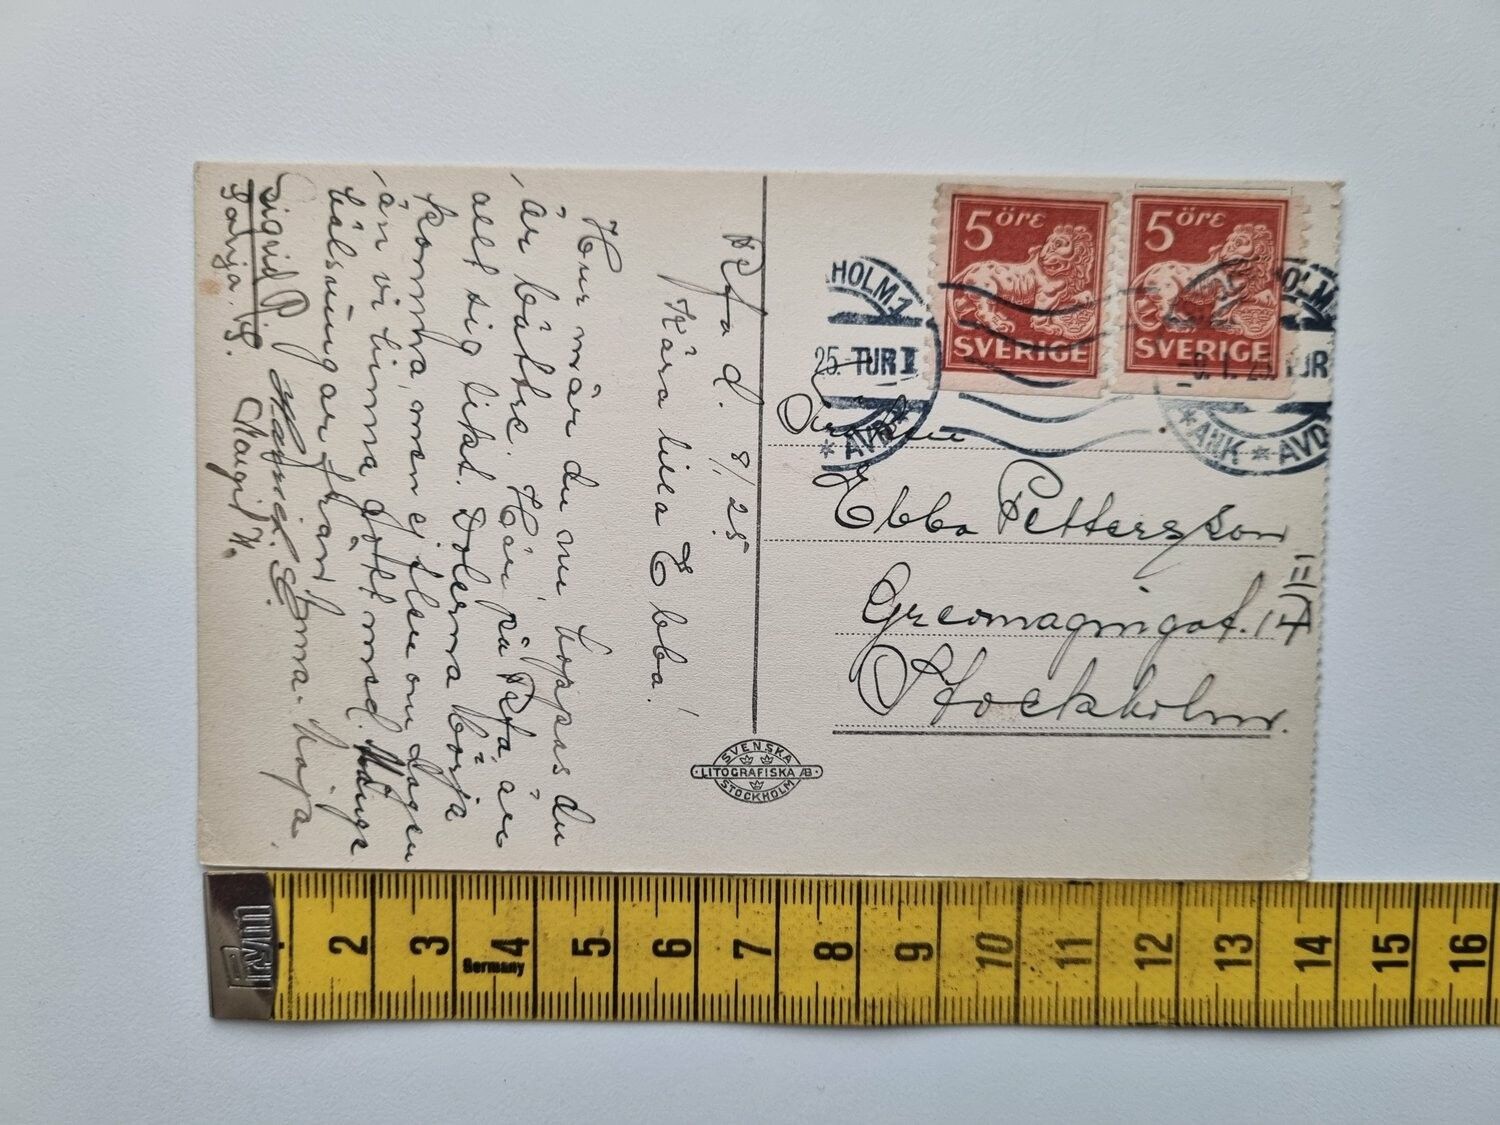 Refa d. 8/1 25
Kära lilla Ebba!
Hur mår du nu hoppas du
är bättre. Här på Refa, är
allt sig likt. Dolerna börja
komma, men ej flera om dagen
än vi hinna gått med. Många
hälsningar från
Emma. Maja.
Sigrid P.
Margit H.
5 ÖRE
SVERIGE
5 ÖRE
SVERIGE
HOLM 1
25. TUR I
* AVD
HOLM
-9. 1. 25 TUR
* ANK * AVD
Fröken
Ebba Pettersson
Grevmagnigat. 14 II
Stockholm.
SVENSKA
LITOGRAFISKA AB
STOCKHOLM
Prym
2 3 4 5 6 7 8 9 10 11 12 13 14 15 16
Germany